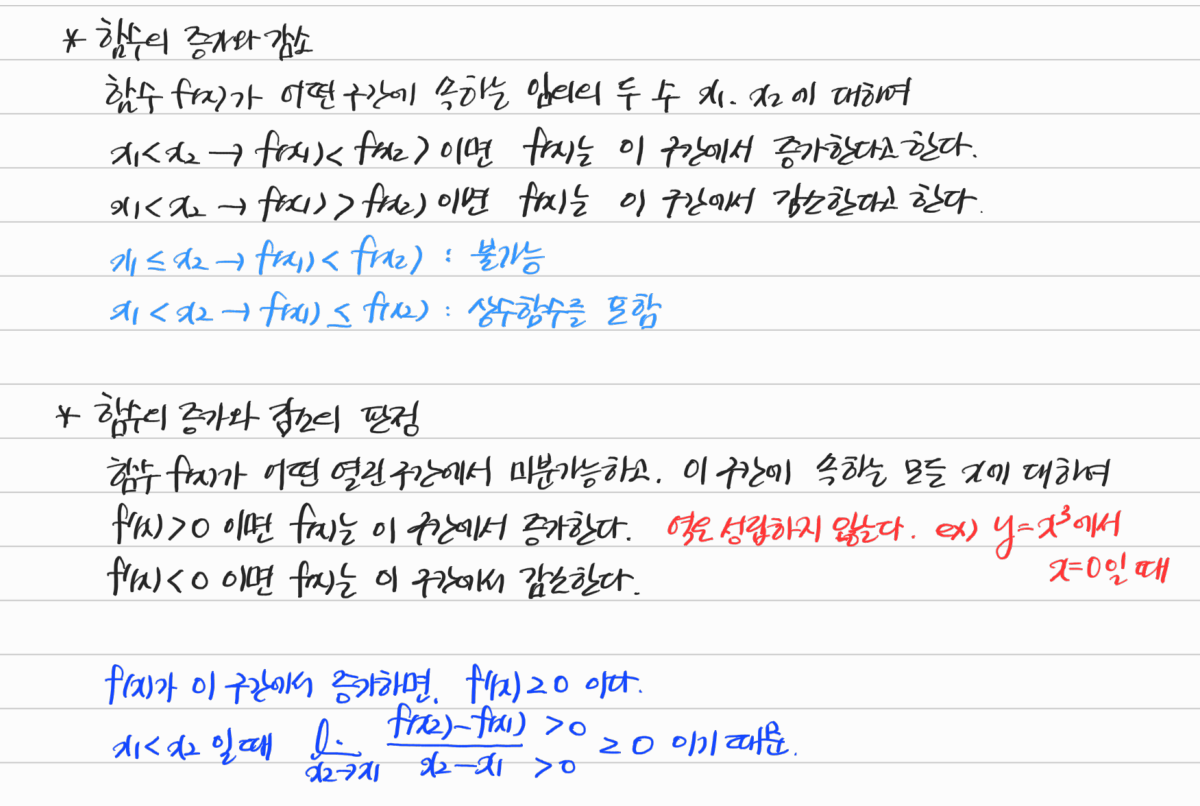 * 함수의 증가와 감소
함수 f(x)가 어떤 구간에 속하는 임의의 두 수 x₁, x₂에 대하여
x₁<x₂ → f(x₁)<f(x₂)이면 f(x)는 이 구간에서 증가한다고 한다.
x₁<x₂ → f(x₁)>f(x₂)이면 f(x)는 이 구간에서 감소한다고 한다.
x₁≤x₂ → f(x₁)<f(x₂) : 불가능
x₁<x₂ → f(x₁)≤f(x₂) : 상수함수를 포함
* 함수의 증가와 감소의 판정
함수 f(x)가 어떤 열린 구간에서 미분가능하고, 이 구간에 속하는 모든 x에 대하여
f'(x)>0 이면 f(x)는 이 구간에서 증가한다. 역은 성립하지 않는다. ex) y=x³에서
x=0일 때
f'(x)<0 이면 f(x)는 이 구간에서 감소한다.
f(x)가 이 구간에서 증가하면, f'(x)≥0 이다.
x₁<x₂ 일 때 lim_{x₂→x₁} (f(x₂)-f(x₁) >0)/(x₂-x₁ >0) ≥0 이기 때문.